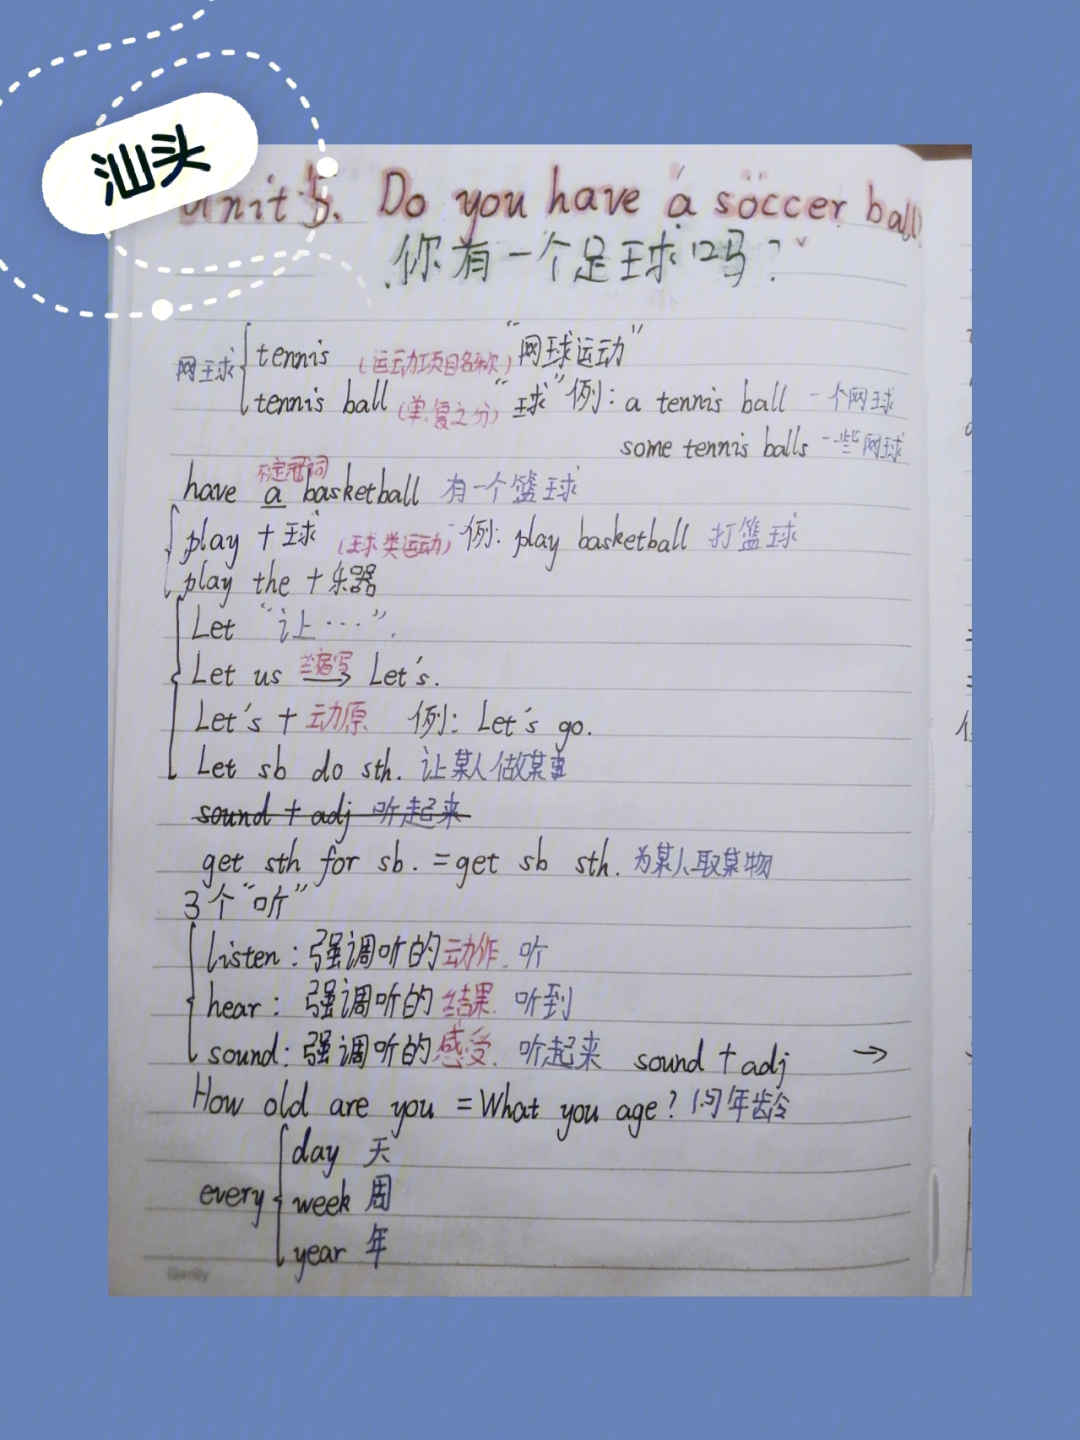 汕头
Unit 5. Do you have a soccer ball
你有一个足球吗?
网球 tennis (运动项目名称) "网球运动"
tennis ball (单.复之分) "球" 例: a tennis ball 一个网球
some tennis balls 一些网球
不定冠词
have a basketball 有一个篮球
play + 球 (球类运动) 例: play basketball 打篮球
play the + 乐器
Let "让…".
Let us 缩写 → Let's.
Let's + 动原 例: Let's go.
Let sb do sth. 让某人做某事
sound + adj 听起来
get sth for sb. = get sb sth. 为某人取某物
3个"听"
listen: 强调听的动作. 听
hear: 强调听的结果. 听到
sound: 强调听的感受. 听起来 sound + adj →
How old are you = What you age? 问年龄
day 天
every week 周
year 年